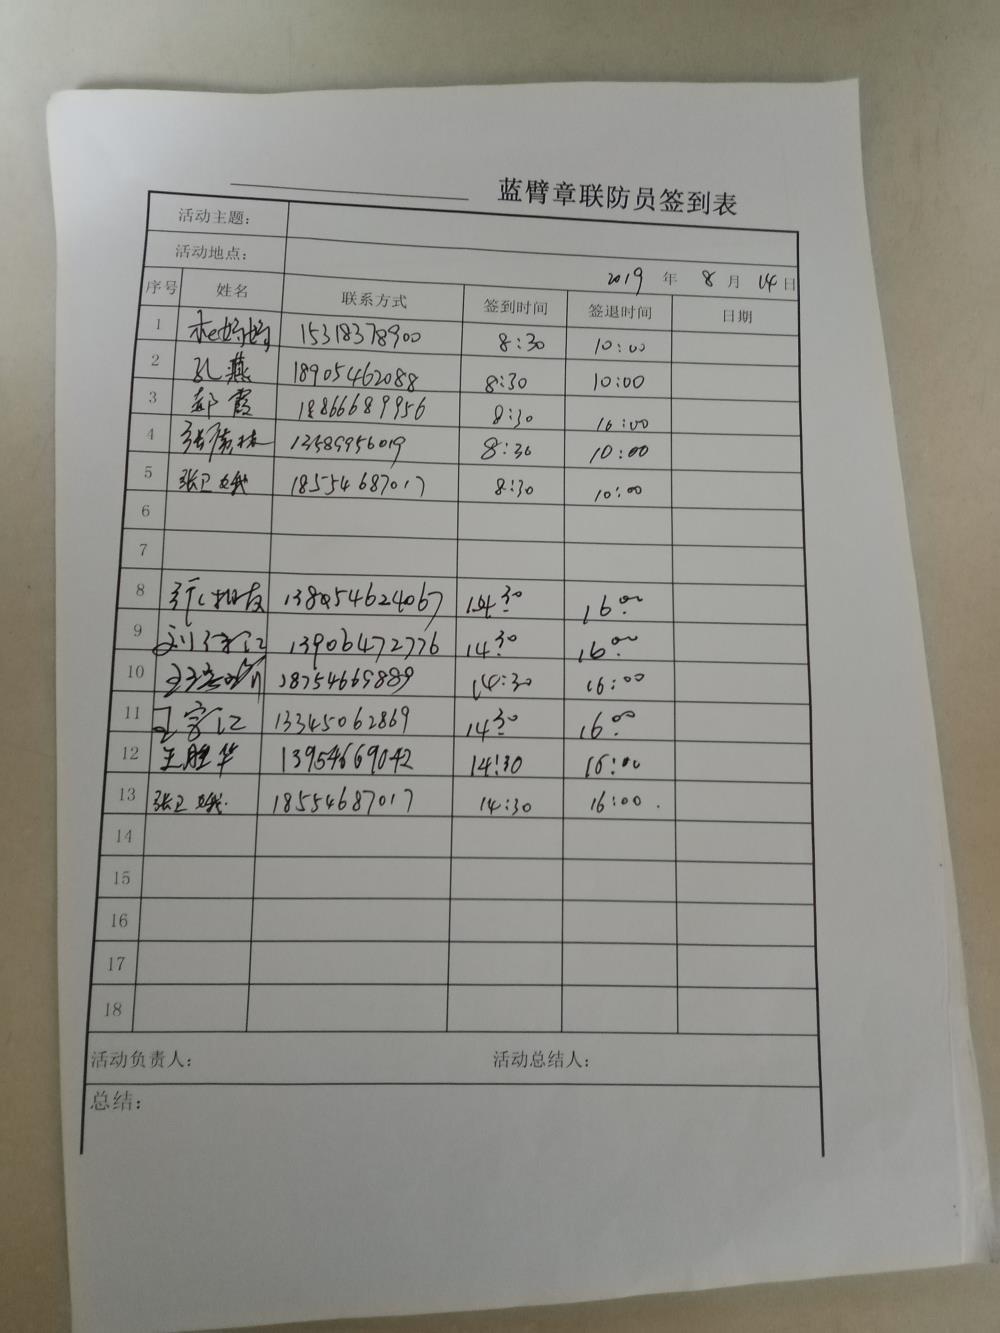 蓝臂章联防员签到表
活动主题：
活动地点：
2019 年 8 月 14 日
序号 姓名 联系方式 签到时间 签退时间 日期
1 15318378900 8:30 10:00
2 孔燕 18905462088 8:30 10:00
3 郝霞 18866689956 8:30 10:00
4 13589956019 8:30 10:00
5 张卫娥 18554687017 8:30 10:00
6
7
8 14:30 16:00
9 13906472776 14:30 16:00
10 18754669889 14:30 16:00
11 13345062869 14:30 16:00
12 王胜华 13954669042 14:30 16:00
13 张卫娥 18554687017 14:30 16:00
14
15
16
17
18
活动负责人： 活动总结人：
总结：